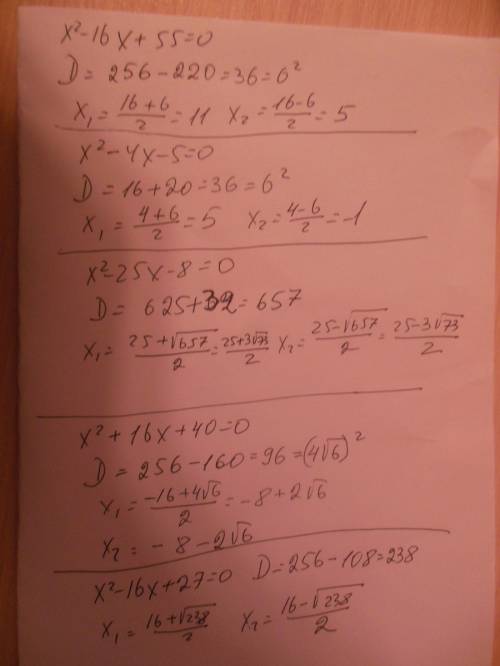 x²-16x+55=0
D=256-220=36=6²
x₁=(16+6)/2=11 x₂=(16-6)/2=5
x²-4x-5=0
D=16+20=36=6²
x₁=(4+6)/2=5 x₂=(4-6)/2=-1
x²-25x-8=0
D=625+32=657
x₁=(25+√657)/2=(25+3√73)/2 x₂=(25-√657)/2=(25-3√73)/2
x²+16x+40=0
D=256-160=96=(4√6)²
x₁=(-16+4√6)/2=-8+2√6
x₂=-8-2√6
x²-16x+27=0 D=256-108=238
x₁=(16+√238)/2 x₂=(16-√238)/2